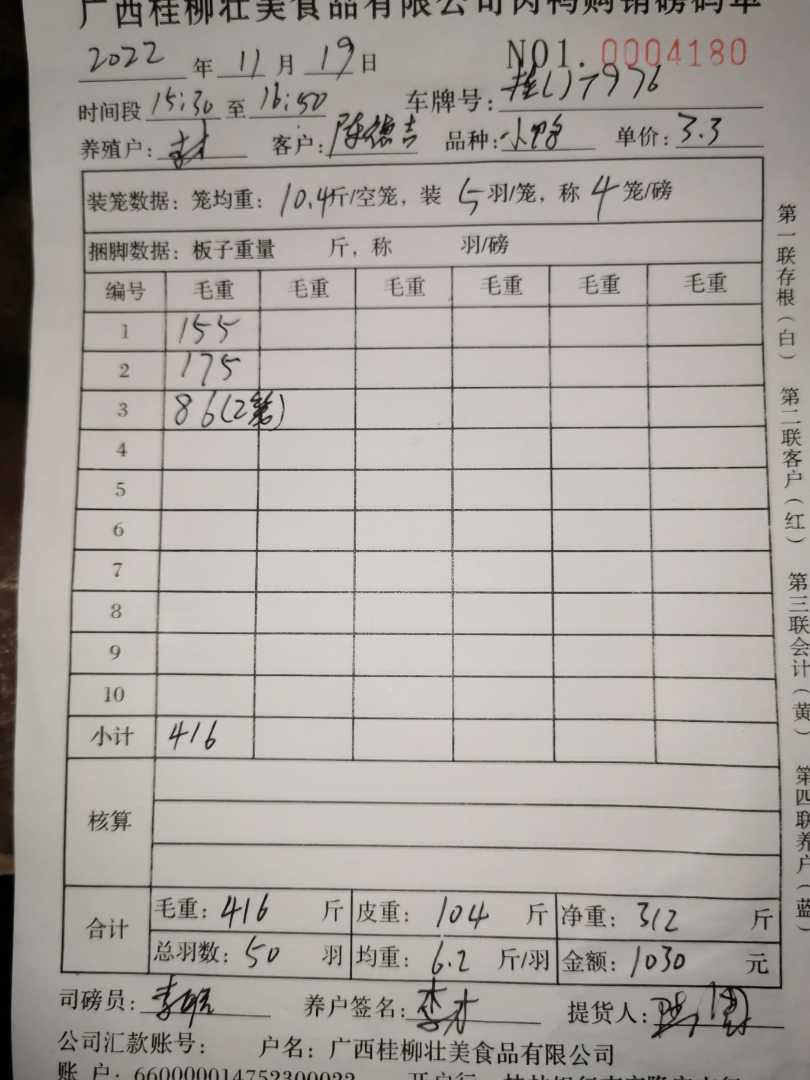 广西桂柳壮美食品有限公司肉鸭购销磅码单
2022 年 11 月 19 日 NO1. 0004180
时间段 15:30 至 16:50 车牌号:
养殖户: 李才 客户: 陈德吉 品种: 小鸭 单价: 3.3
装笼数据: 笼均重: 10.4斤/空笼, 装 5 羽/笼, 称 4 笼/磅
捆脚数据: 板子重量 斤, 称 羽/磅
编号 毛重 毛重 毛重 毛重 毛重 毛重
1 155
2 175
3 86(2笼)
4
5
6
7
8
9
10
小计 416
核算
合计 毛重: 416 斤 皮重: 104 斤 净重: 312 斤
总羽数: 50 羽 均重: 6.2 斤/羽 金额: 1030 元
司磅员: 养户签名: 李才 提货人:
公司汇款账号: 户名: 广西桂柳壮美食品有限公司
账 户: 660000014752300022
第一联存根(白) 第二联客户(红) 第三联会计(黄) 第四联养户(蓝)